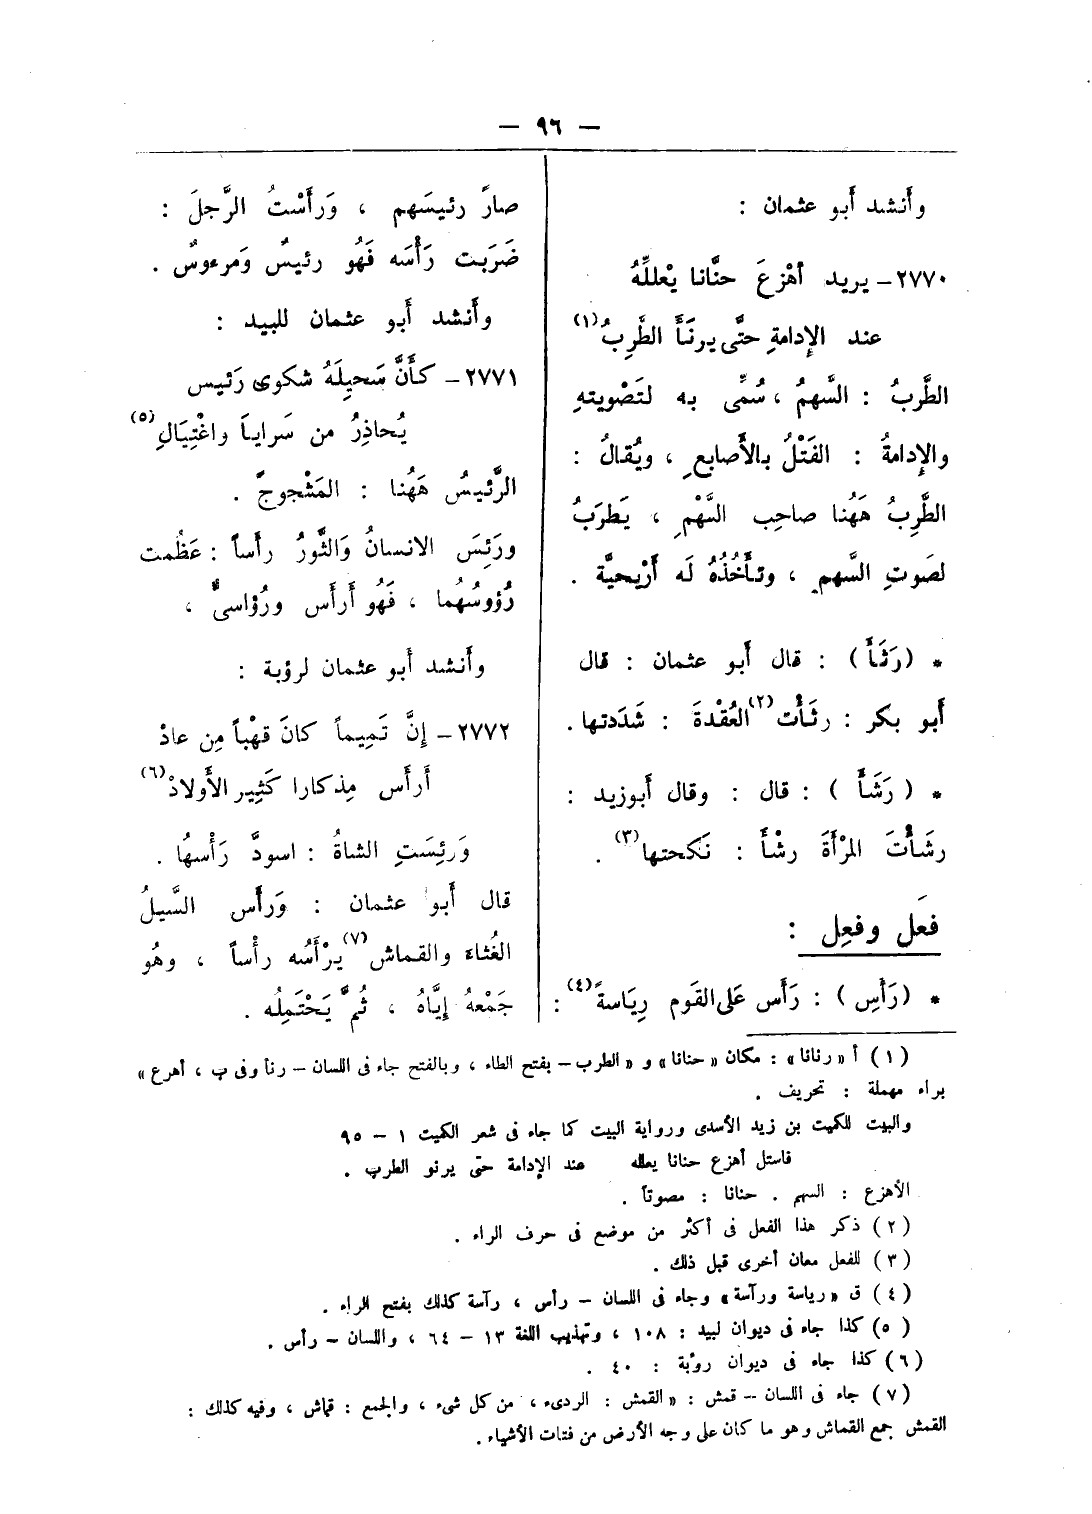 — ٩٦ —
وأنشد أبو عثمان :
٢٧٧٠ – يريد أهْزعَ حنَّانا يعْللِّهُ
عند الإدامةِ حتَّى يرنَأَ الطَّرِبُ(١)
الطَّربُ : السَّهمُ ، سُمِّى به لتَصْويتهِ
والإدامةُ : الفَتْلُ بالأَصابعِ ، ويُقالُ :
الطَّرِبُ هَهُنا صاحِب السَّهْمِ ، يَطرَبُ
لصَوتِ السَّهمِ ، وتأخُذُهُ لَه أَرْيحيَّة .
* (رَثَأَ) : قال أَبو عثمان : قال
أَبو بكر : رثَأْت(٢) العُقْدةَ : شَدَدتها .
* ( رَشَأَ ) : قال : وقال أَبوزيد :
رشَأْتَ المرْأَةَ رشْأَ : نَكحتها(٣) .
فعَل وفعِل :
* (رَأَسِ) : رَأَس عَلى القَوم رِيَاسةً(٤) :
صارَ رئيسَهم ، وَرأَسْتُ الرَّجلَ :
ضَرَبت رَأْسَه فَهُو رئيسٌ وَمرءوسٌ .
وأَنشد أَبو عثمان للبيد :
٢٧٧١ – كأَنَّ سَحيِلَهُ شكوى رَئيس
يُحاذِرُ من سَراياَ واغْتِيَالِ(٥)
الرَّئيسُ هَهُنا : المَشْجوجَ .
ورَئِسَ الانسانُ وَالثَّورُ رأَساً : عَظُمت
رُؤوسُهُما ، فَهُو أَرأَس ورُؤاسىٌّ ،
وأَنشد أَبو عثمان لرؤبة :
٢٧٧٢ – إِنَّ تَمِيماً كانَ قهْباً مِن عادْ
أَرأَس مِذكارا كَثِير الأَولادْ(٦)
وَرئِسَتِ الشاةُ : اسودَّ رَأْسهُا .
قال أَبو عثمان : وَرأَس السَّيلُ
الغُثاءَ والقماش(٧) يرْأَسُه رأْساً ، وهُو
جَمْعهُ إِيَّاهُ ، ثُمَّ يَحْتَمِلُه .
(١) أ «رنانا» : مكان «حنانا» و «الطرب – بفتح الطاء ، وبالفتح جاء فى اللسان – رنأ وفى ب ، أهرع»
براء مهملة : تحريف .
والبيت للكميت بن زيد الأسدى ورواية البيت كما جاء فى شعر الكميت ١ – ٩٥
فاستل أهزع حنانا يعلله عند الإدامة حتى يرنو الطرب .
الأهزع : السهم . حنانا : مصوتاً .
(٢) ذكر هذا الفعل فى أكثر من موضع فى حرف الراء .
(٣) للفعل معان أخرى قبل ذلك .
(٤) ق «رياسة ورآسة» وجاء فى اللسان – رأس ، رآسة كذلك بفتح الراء .
(٥) كذا جاء فى ديوان لبيد : ١٠٨ ، وتهذيب اللغة ١٣ – ٦٤ ، واللسان – رأس .
(٦) كذا جاء فى ديوان رؤبة : ٤٠ .
(٧) جاء فى اللسان – قمش : «القمش : الردىء ، من كل شىء ، والجمع : قماش ، وفيه كذلك :
القمش جمع القماش وهو ما كان على وجه الأرض من فتات الأشياء .